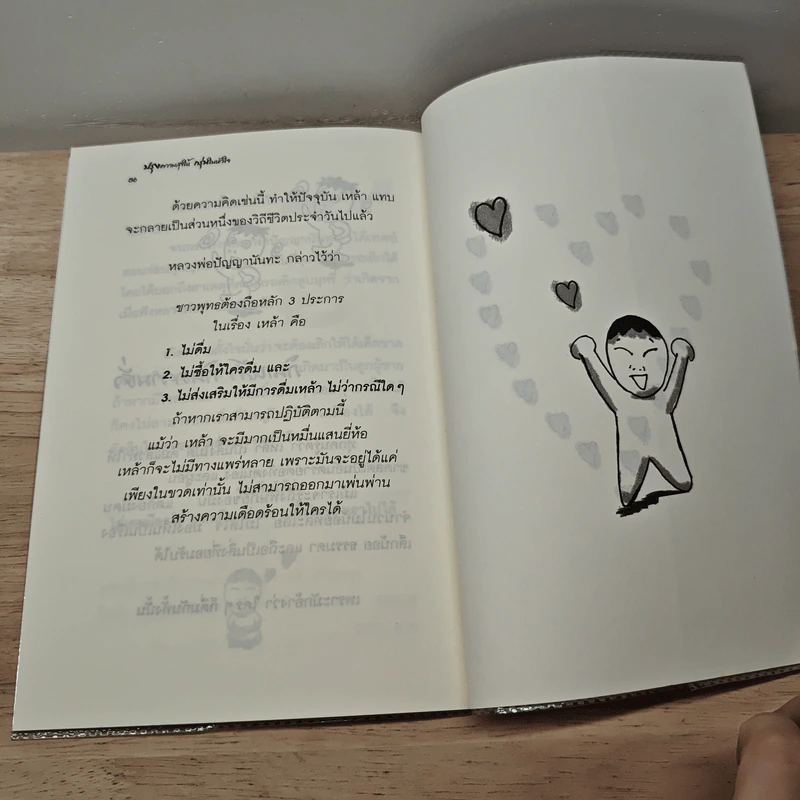 ๕๒
ด้วยความคิดเช่นนี้ ทำให้ปัจจุบัน เหล้า แทบ
จะกลายเป็นส่วนหนึ่งของวิถีชีวิตประจำวันไปแล้ว
หลวงพ่อปัญญานันทะ กล่าวไว้ว่า
ชาวพุทธต้องถือหลัก 3 ประการ
ในเรื่อง เหล้า คือ
1. ไม่ดื่ม
2. ไม่ซื้อให้ใครดื่ม และ
3. ไม่ส่งเสริมให้มีการดื่มเหล้า ไม่ว่ากรณีใด ๆ
ถ้าหากเราสามารถปฏิบัติตามนี้
แม้ว่า เหล้า จะมีมากเป็นหมื่นแสนยี่ห้อ
เหล้าก็จะไม่มีทางแพร่หลาย เพราะมันจะอยู่ได้แค่
เพียงในขวดเท่านั้น ไม่สามารถออกมาเพ่นพ่าน
สร้างความเดือดร้อนให้ใครได้